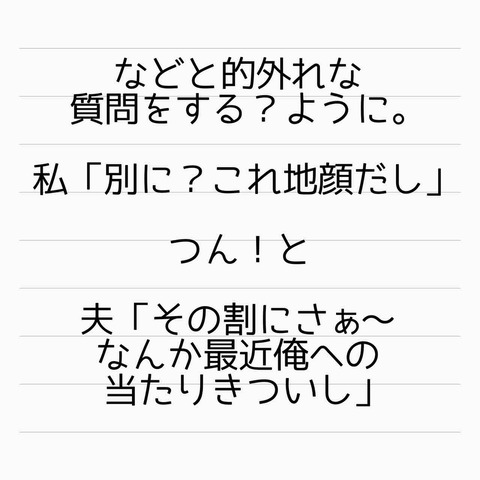 などと的外れな
質問をする？ように。
私「別に？これ地顔だし」
つん！と
夫「その割にさぁ〜
なんか最近俺への
当たりきついし」